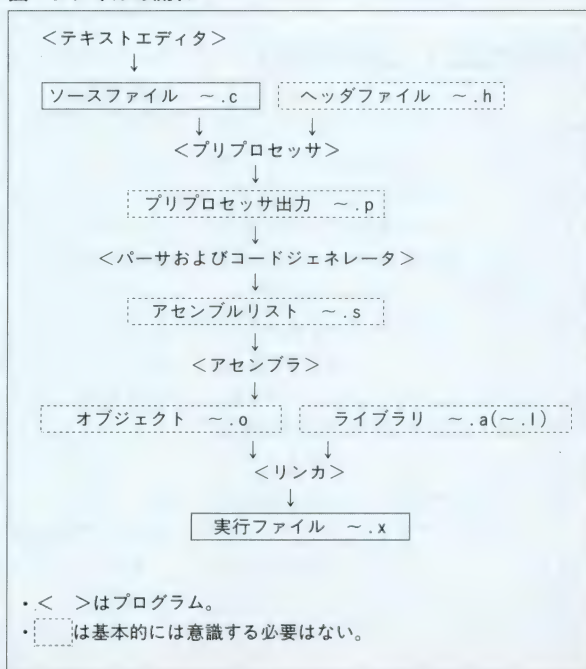 ＜テキストエディタ＞
↓
ソースファイル ～.c ヘッダファイル ～.h
↓ ↓
＜プリプロセッサ＞
↓
プリプロセッサ出力 ～.p
↓
＜パーサおよびコードジェネレータ＞
↓
アセンブルリスト ～.s
↓
＜アセンブラ＞
↓
オブジェクト ～.o ライブラリ ～.a(～.l)
↓ ↓
＜リンカ＞
↓
実行ファイル ～.x
・＜ ＞はプログラム。
・ は基本的には意識する必要はない。